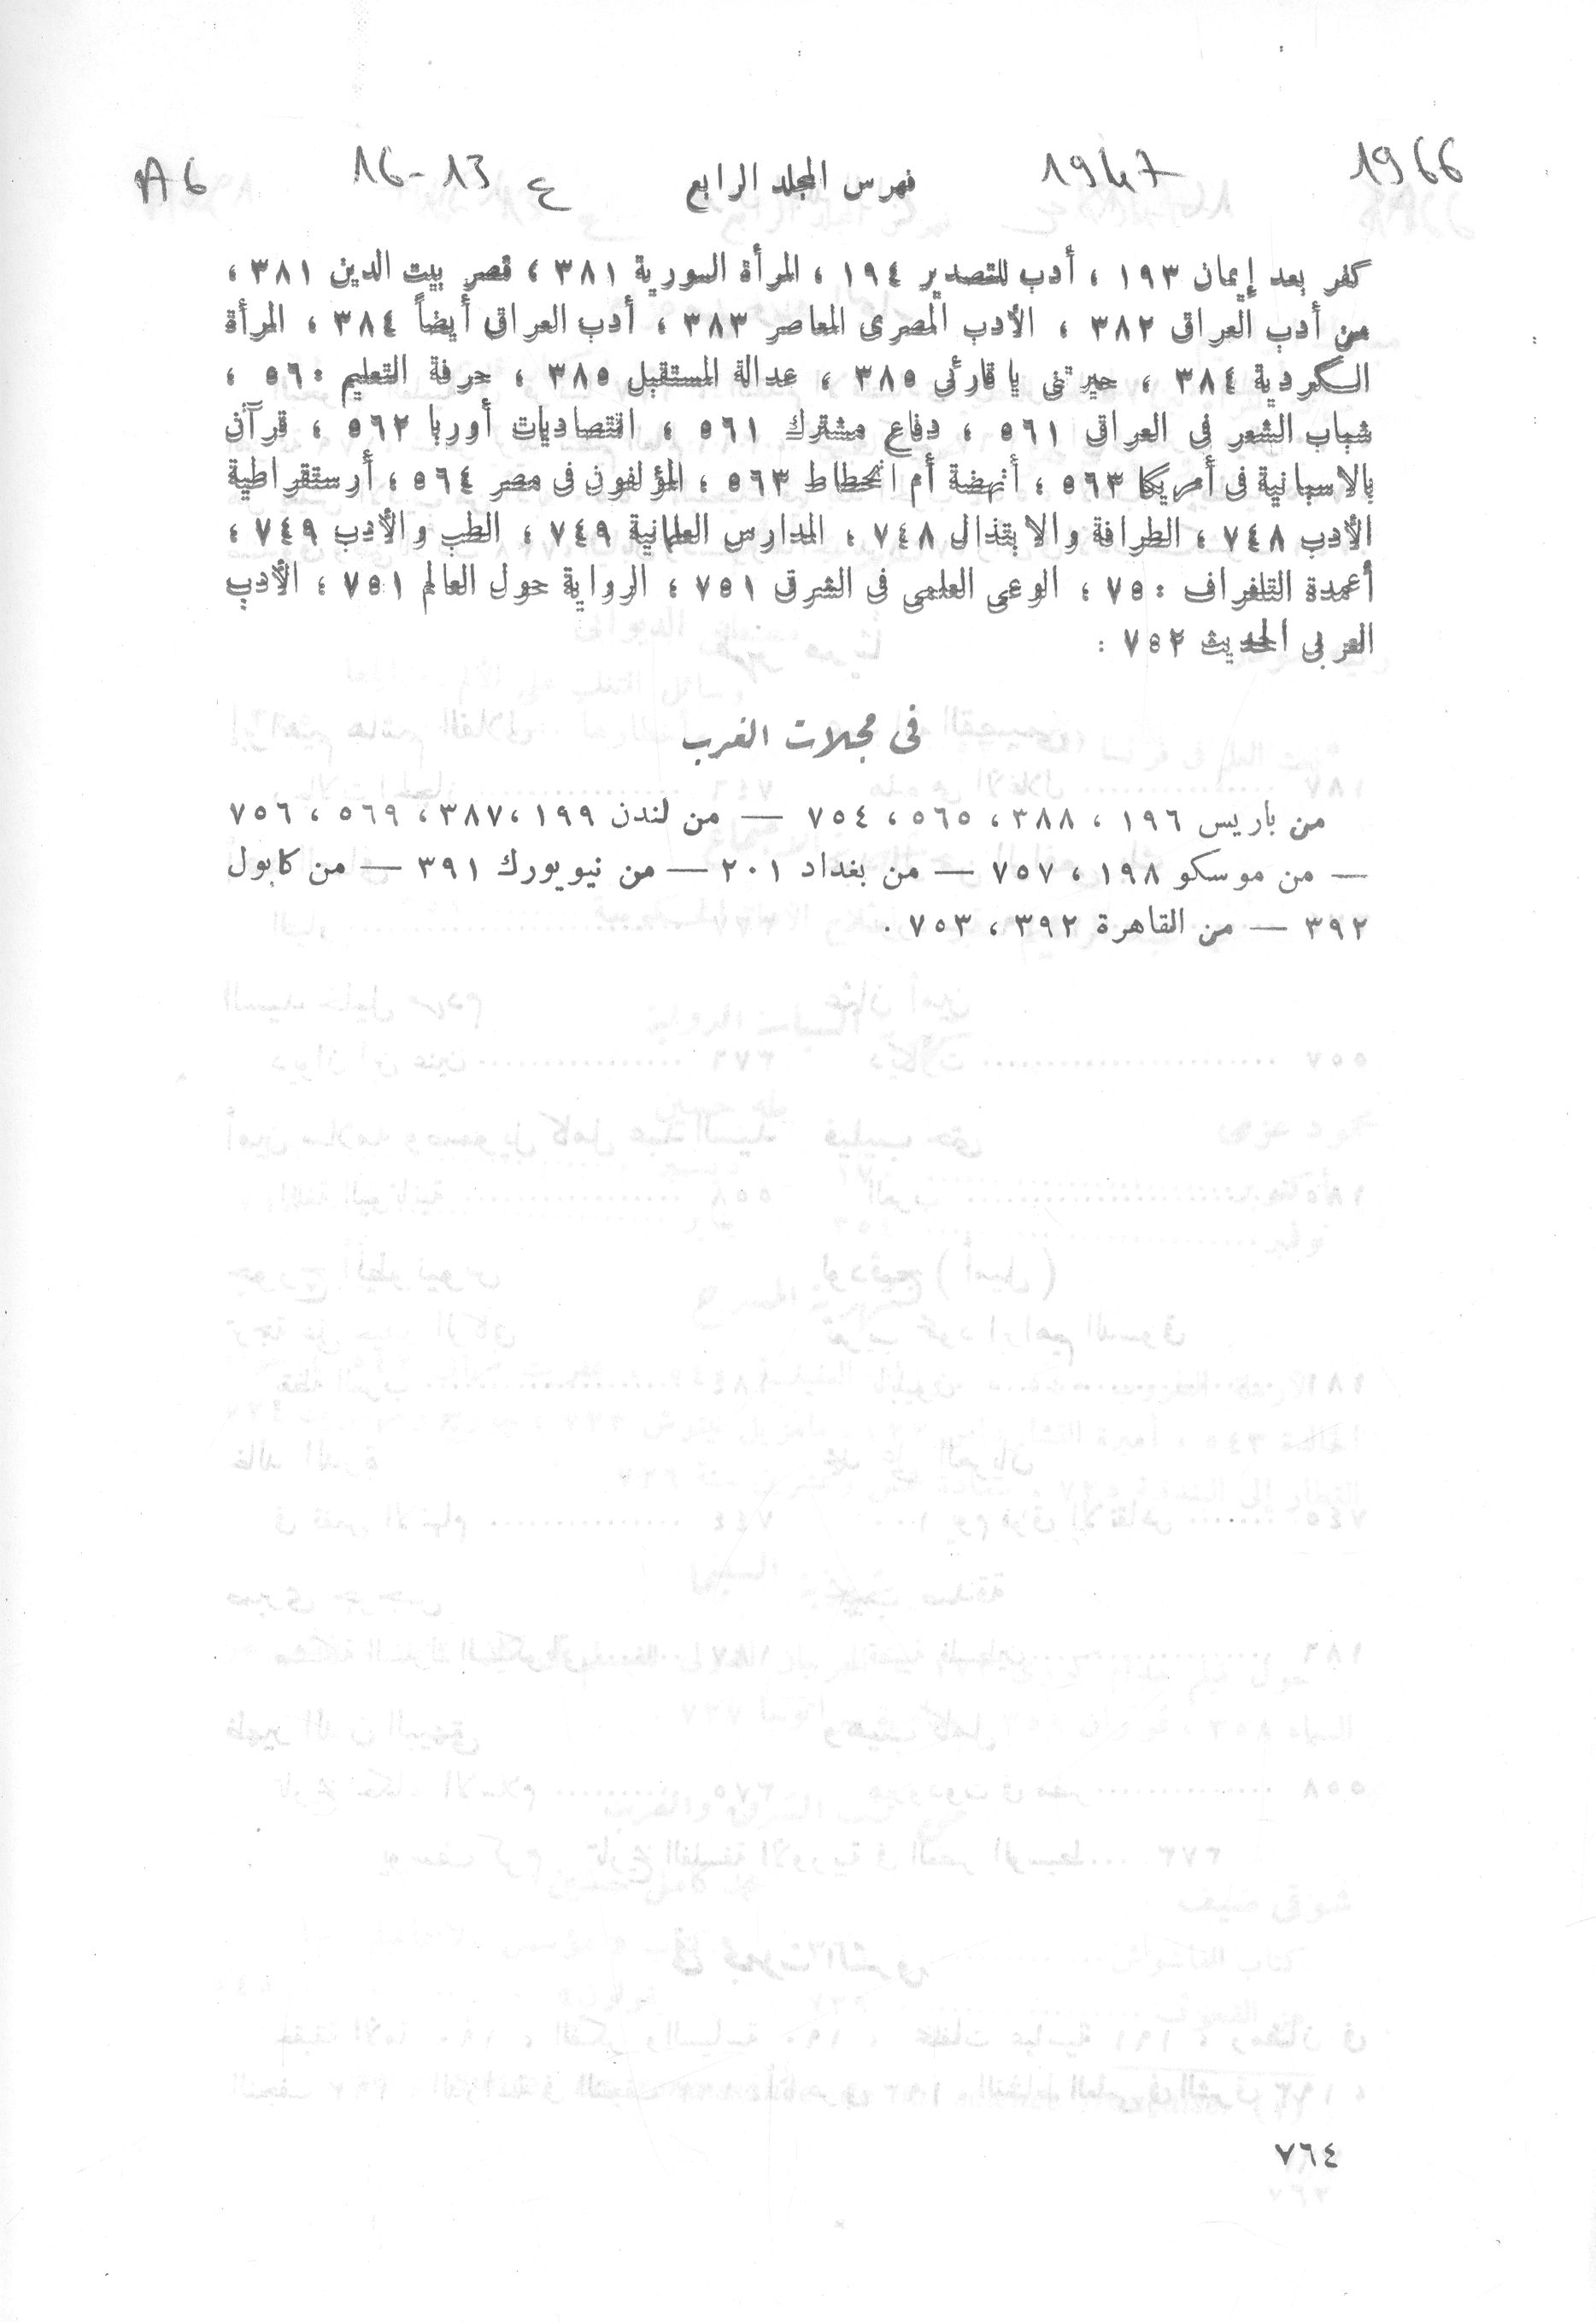 1966 1947 فهرس المجلد الرابع ع 13-16 A6
كفر بعد إيمان ١٩٣ ، أدب للتصدير ١٩٤ ، المرأة السورية ٣٨١ ، قصر بيت الدين ٣٨١ ،
من أدب العراق ٣٨٢ ، الأدب المصرى المعاصر ٣٨٣ ، أدب العراق أيضاً ٣٨٤ ، المرأة
الكردية ٣٨٤ ، حيرتنى يا قارئى ٣٨٥ ، عدالة المستقبل ٣٨٥ ، حرفة التعليم ٥٦٠ ،
شباب الشعر فى العراق ٥٦١ ، دفاع مشترك ٥٦١ ، اقتصاديات أوربا ٥٦٢ ، قرآن
بالاسبانية فى أمريكا ٥٦٣ ، أنهضة أم انحطاط ٥٦٣ ، المؤلفون فى مصر ٥٦٤ ، أرستقراطية
الأدب ٧٤٨ ، الطرافة والابتذال ٧٤٨ ، المدارس العلمانية ٧٤٩ ، الطب والأدب ٧٤٩ ،
أعمدة التلغراف ٧٥٠ ، الوعى العلمى فى الشرق ٧٥١ ، الرواية حول العالم ٧٥١ ، الأدب
العربى الحديث ٧٥٢ .
فى مجلات الغرب
من باريس ١٩٦ ، ٣٨٨ ، ٥٦٥ ، ٧٥٤ — من لندن ١٩٩ ، ٣٨٧ ، ٥٦٩ ، ٧٥٦
— من موسكو ١٩٨ ، ٧٥٧ — من بغداد ٢٠١ — من نيويورك ٣٩١ — من كابول
٣٩٢ — من القاهرة ٣٩٢ ، ٧٥٣ .
٧٦٤